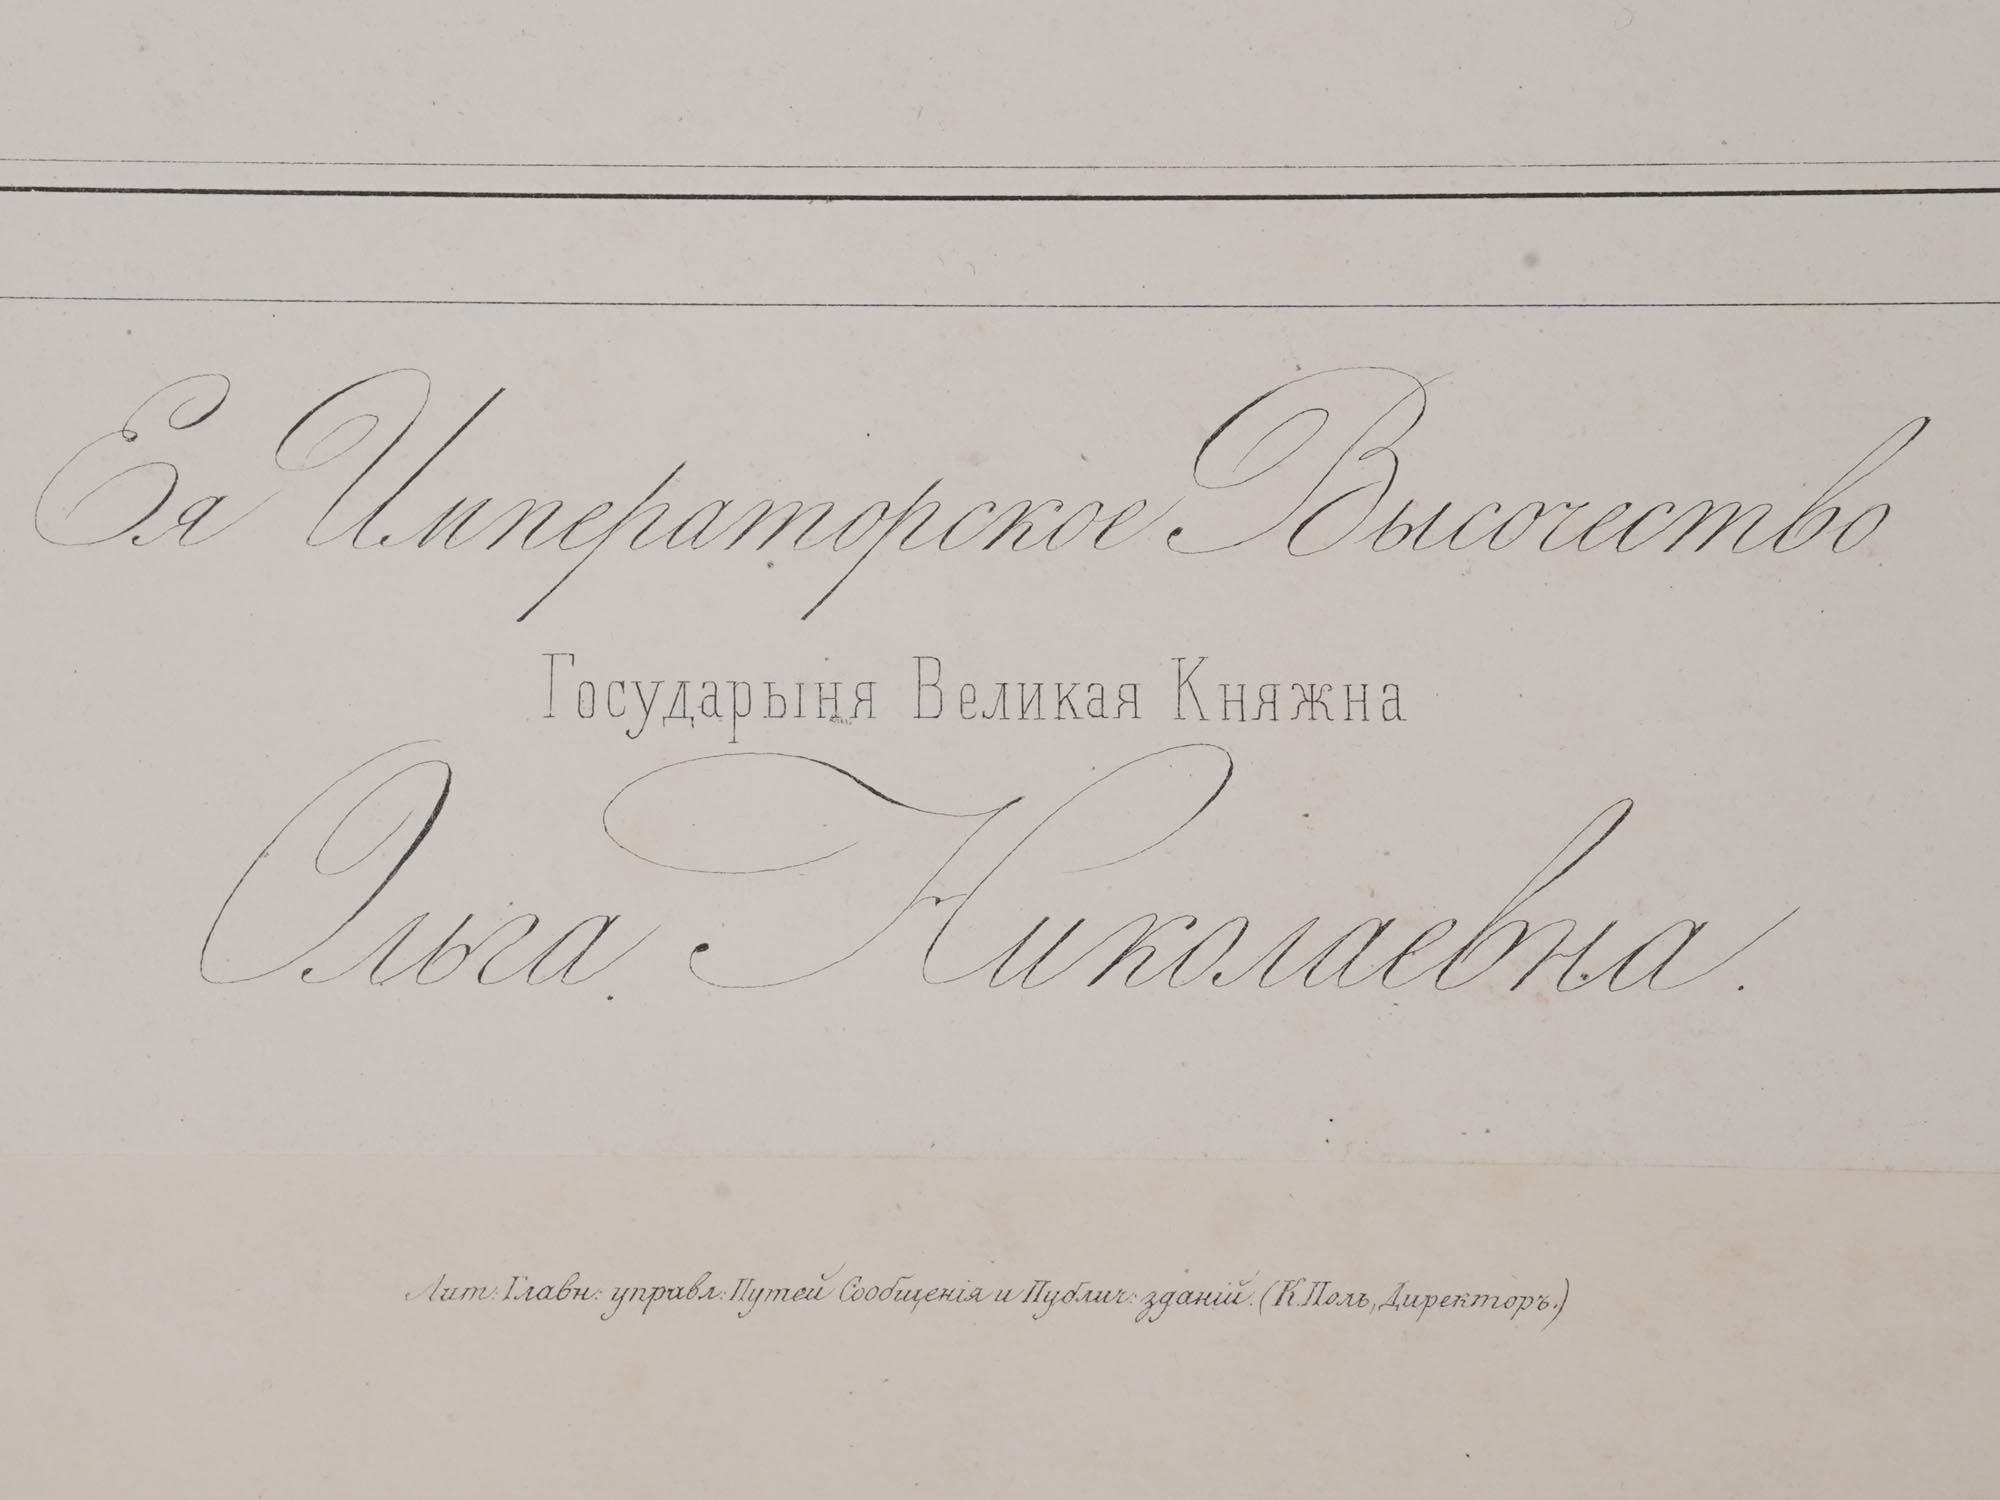 Ея Императорское Высочество
Государыня Великая Княжна
Ольга Николаевна.
Лит: Главн: управл: Путей Сообщенія и Публич: зданій. (К. Поль, Директоръ.)